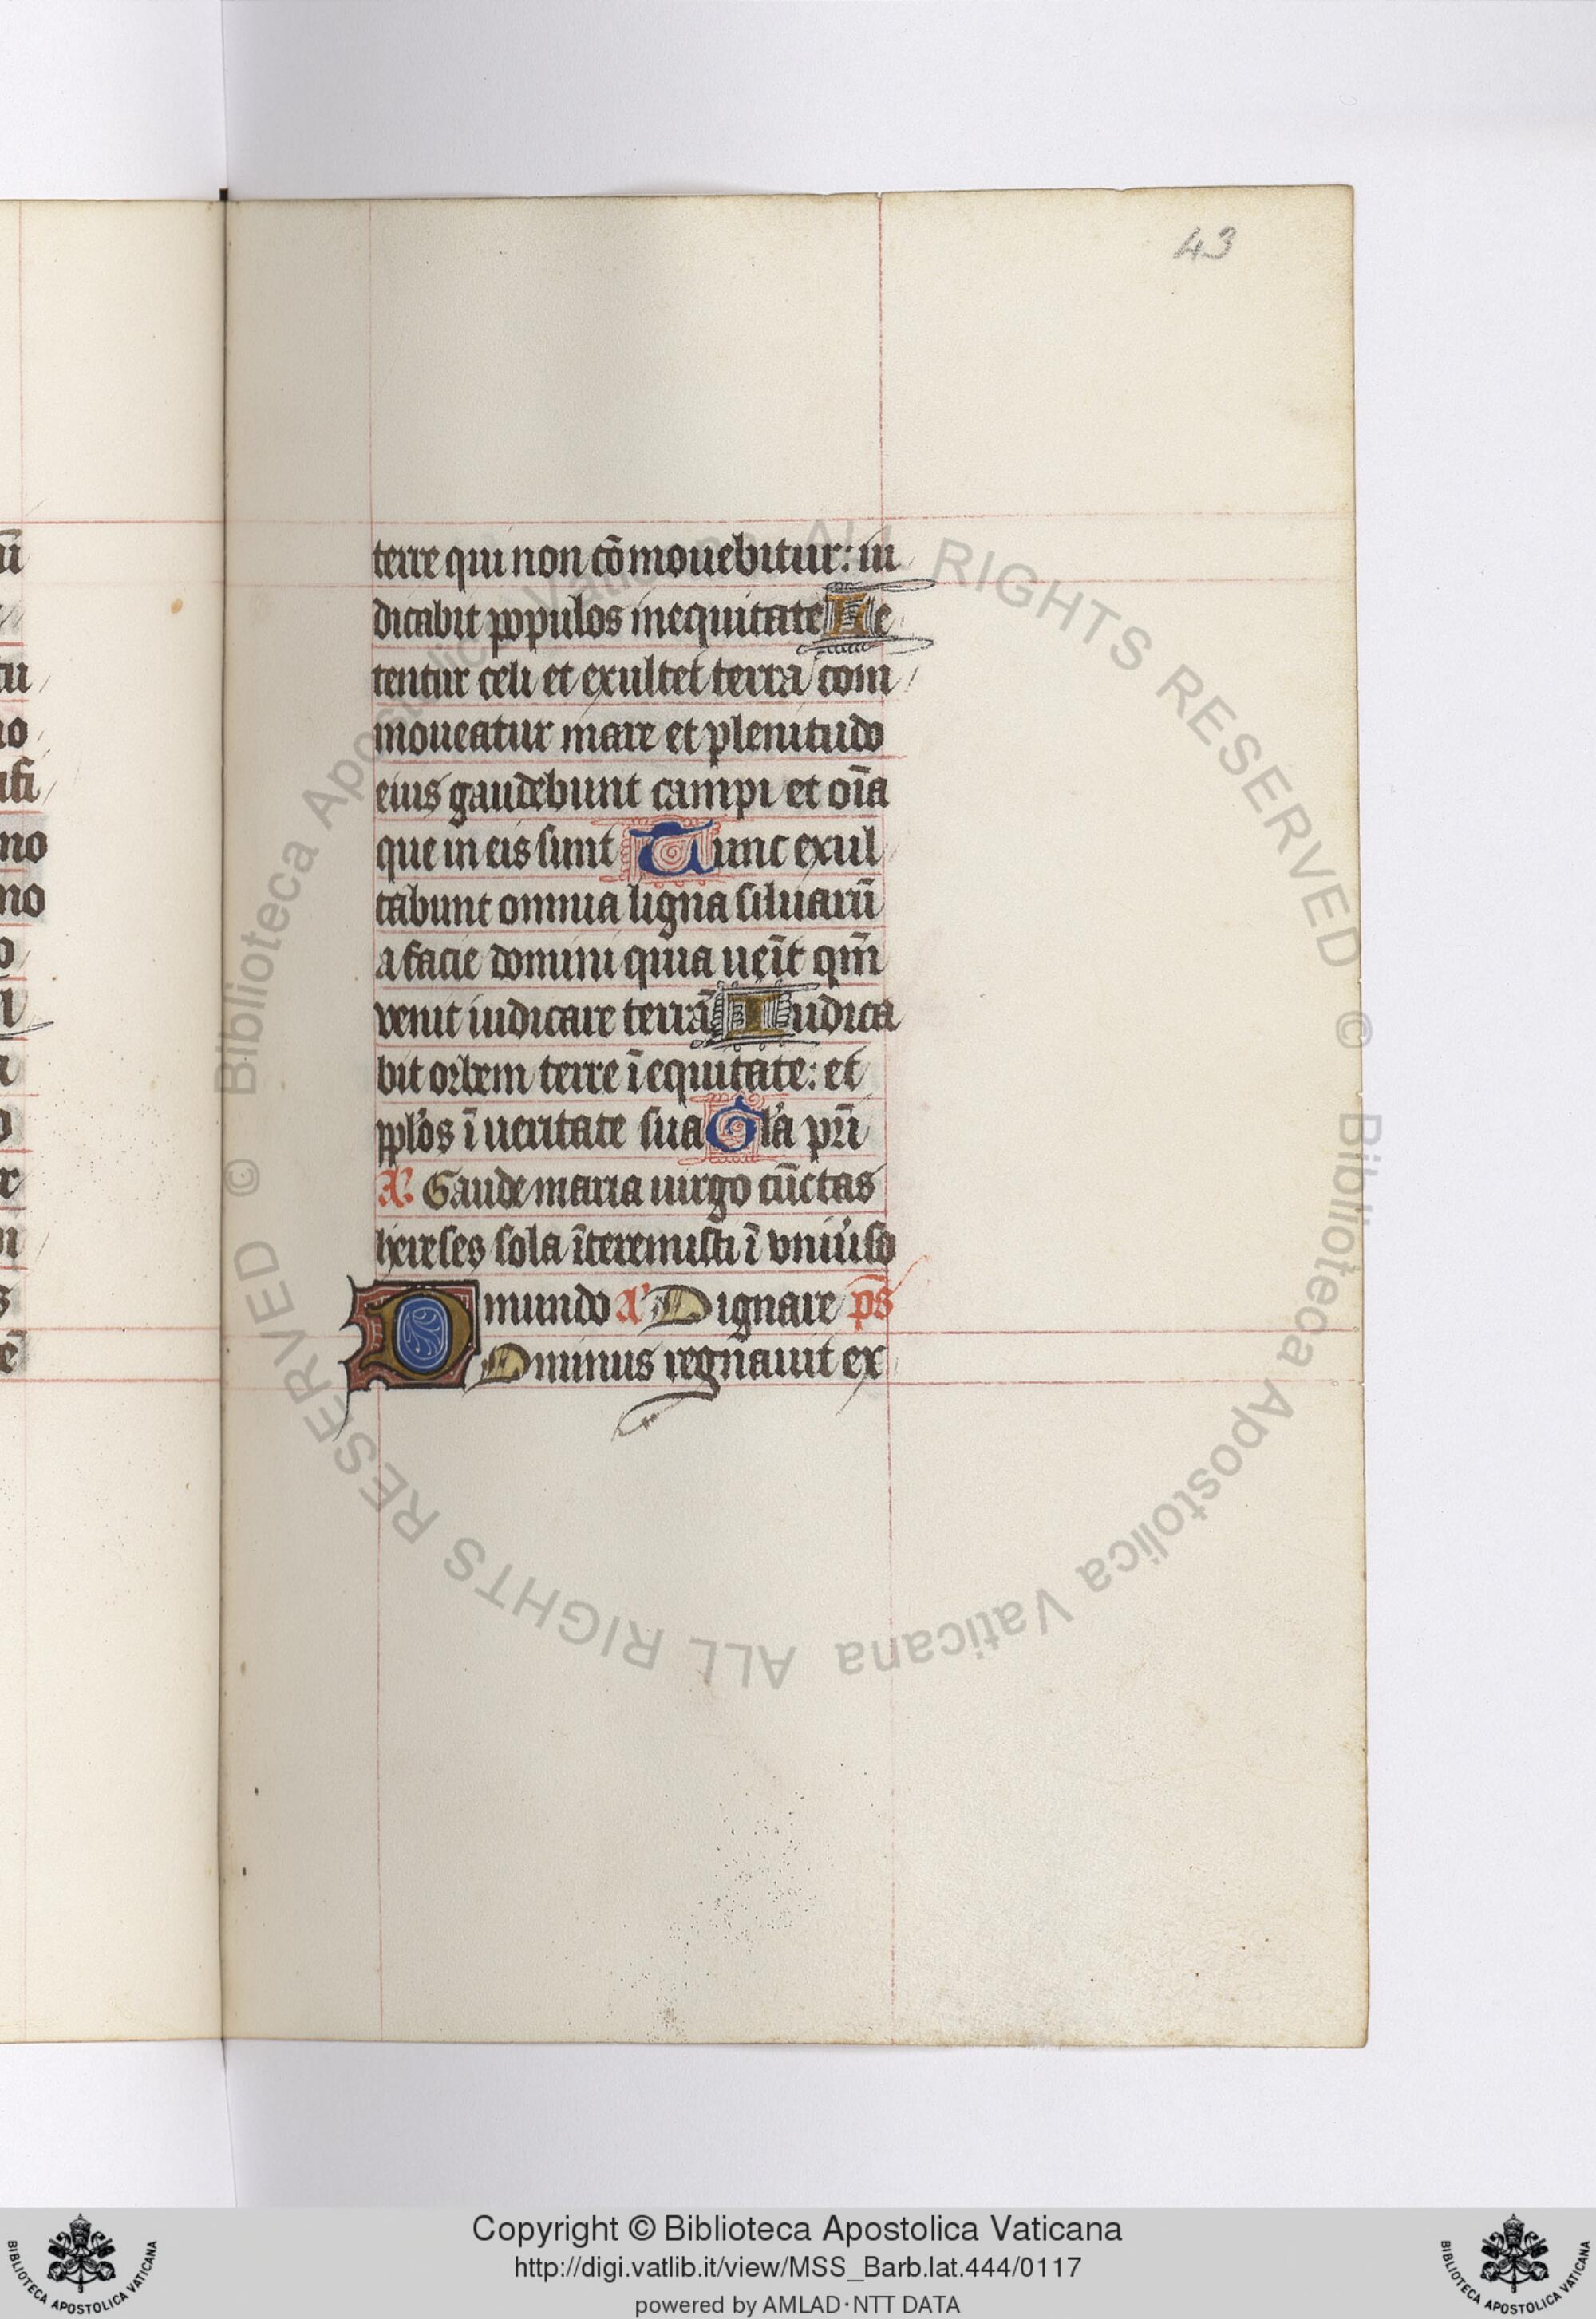 43
terre qui non cōmouebitur: iu
dicabit populos in equitate Le
tentur celi et exultet terra com
moueatur mare et plenitudo
eius gaudebunt campi et oīa
que in eis sunt Tunc exul
tabunt omnia ligna siluarū
a facie domini quia uēit qm̄
venit iudicare terrā Iudica
bit orbem terre ī equitate: et
pplo's ī ueritate sua Gl'a pr̄i
A'. Gaude maria uirgo cūctas
hereses sola īteremisti ī vniu'so
mundo A' Dignare ps̄
DOminus regnauit ex
ALL RIGHTS RESERVED © Biblioteca Apostolica Vaticana ALL RIGHTS RESERVED © Biblioteca Apostolica Vaticana
Copyright © Biblioteca Apostolica Vaticana
http://digi.vatlib.it/view/MSS_Barb.lat.444/0117
powered by AMLAD·NTT DATA
BIBLIOTECA APOSTOLICA VATICANA
BIBLIOTECA APOSTOLICA VATICANA